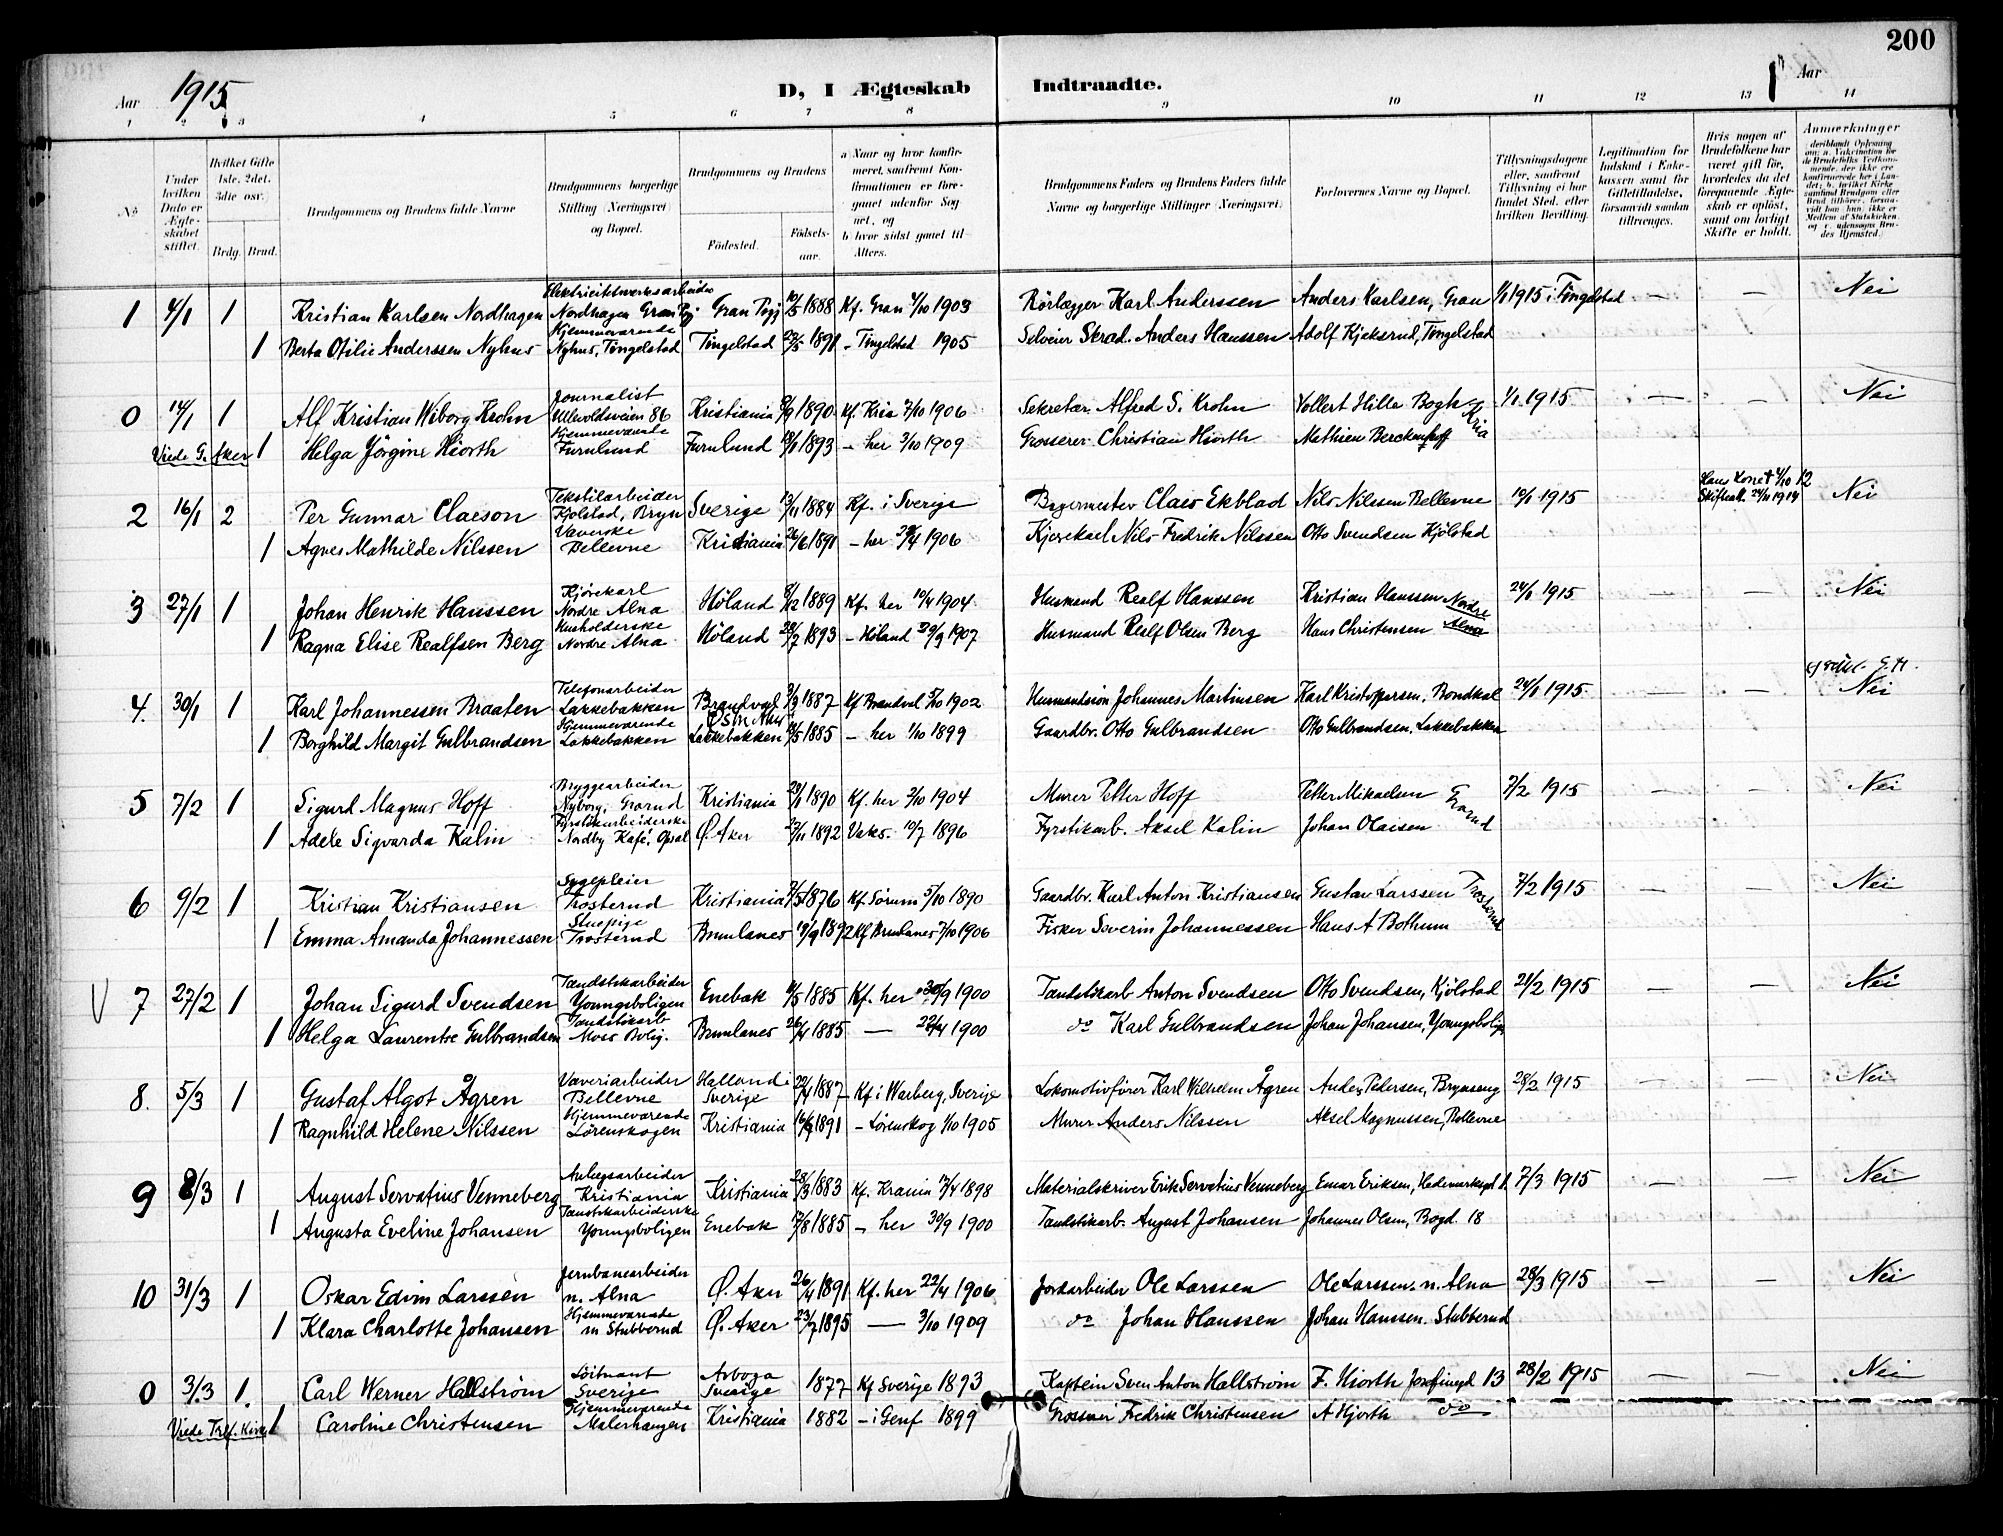 200
Aar 1915
D, I Ægteskab Indtraadte.
Aar
1 2 3 4 5 6 7 8 9 10 11 12 13 14
No
Under hvilken Dato er Ægteskabet stiftet.
Hvilket Gifte 1ste, 2det, 3die osv.
Brdg. Brud.
Brudgommens og Brudens fulde Navne
Brudgommens borgerlige Stilling (Næringsvei) og Bopæl.
Brudgommens og Brudens
Fødested.
Fødselsaar.
a Naar og hvor konfirmeret, saafremt Konfirmationen er foregaaet udenfor Sognet, og
b hvor sidst gaaet til Alters.
Brudgommens Faders og Brudens Faders fulde Navne og borgerlige Stillinger (Næringsvei)
Forlovernes Navne og Bopæl.
Tillysningsdagene eller, saafremt Tillysning ei har fundet Sted, efter hvilken Bevilling.
Legitimation for Indskud i Enkekassen samt for Giftetilladelse, forsaavidt saadan tiltrænges.
Hvis nogen af Brudefolkene har været gift før, hvorledes da det foregaaende Ægteskab er opløst, samt om lovligt Skifte er holdt.
Anmærkninger
1 4/1 1 Kristian Karlsen Nordhagen Elektricitetsverksarbeider Nordhagen Gran Pgj Gran Pgj 10/5 1888 Kf. Gran 4/10 1903 Rørlægger Karl Anderssen Anders Karlsen, Gran 1/1 1915 i Tingelstad — — Nei
1 Berta Otilie Anderssen Nyhus Hjemmeværende Nyhus, Tingelstad Tingelstad 22/5 1891 – Tingelstad 1905 Selveier Skræd. Anders Hanssen Adolf Kjeksrud, Tingelstad
0 14/1 1 Alf Kristian Wiborg Krohn Journalist Ullevoldsveien 86 Kristiania 8/9 1890 Kf Kria 7/10 1906 Sekretær Alfred S. Krohn Vollert Hille Bogh Kria 1/1 1915 — — Nei
Viede G. Aker 1 Helga Jörgine Hiorth Hjemmeværende Furulund Furulund 18/1 1893 – her 3/10 1909 Grosserer Christian Hiorth Mathieu Berckenhoff
2 16/1 2 Per Gunnar Claeson Tekstilarbeider Kjolstad, Bryn Sverige 13/11 1884 Kf. i Sverige Bygermester Claes Ekblad Nils Nilssen Bellevue 10/1 1915 Hans Kone † 4/10 12 Skifteatt. 24/11 1914 Nei
1 Agnes Mathilde Nilssen Væverske Bellevue Kristiania 26/6 1891 – her 29/4 1906 Kjørekarl Nils Fredrik Nilssen Otto Svendsen Kjölstad
3 27/1 1 Johan Henrik Hanssen Kjörekarl Nordre Alna Höland 8/12 1889 Kf. her 10/4 1904 Husmand Realf Hanssen Kristian Hanssen Nordre Alna 24/1 1915 — — Nei
1 Ragna Elise Realfsen Berg Husholderske Nordre Alna Höland 28/2 1893 – Höland 29/9 1907 Husmand Realf Olsen Berg Hans Christensen
4. 30/1 1 Karl Johannessen Braaten Telefonarbeider Lakkebakken Brandval 3/3 1887 Kf Brandval 5/10 1902 Husmandssön Johannes Martinsen Karl Kristoffersen, Bondkal 24/1 1915 — — Nei
1 Borghild Margit Gulbrandsen Hjemmeværende Lakkebakken Østre Aker Lakkebakken 9/5 1885 – her 1/10 1899 Gaardbr. Otto Gulbrandsen Otto Gulbrandsen, Lakkebakken
5 7/2 1 Sigurd Magnus Hoff Bryggearbeider Nyborg, Grorud Kristiania 29/1 1890 Kf. her 2/10 1904 Murer Petter Hoff Petter Mikaelsen Grorud 7/2 1915 — — Nei
1 Adele Sigvarda Kalin Fyrstikarbeiderske Nordby Kafé, Opsal Ø. Aker 27/11 1892 Vaks. 12/7 1896 Fyrstikarb. Aksel Kalin Johan Olaisen
6 9/2 1 Kristian Kristiansen Sygepleier Trosterud Kristiania 7/5 1876 Kf. Sörum 5/10 1890 Gaardbr. Karl Anton Kristiansen Gustav Larssen Trosterud 7/2 1915 — — Nei
1 Emma Amanda Johannessen Stuepige Trosterud Brunlanes 19/9 1892 Kf Brunlanes 7/10 1906 Fisker Severin Johannessen Hans A Bothum
V 7 27/2 1 Johan Sigurd Svendsen Tændstikarbeider Youngsboligen Enebak 11/5 1885 Kf. her 30/9 1900 Tændstikarb Anton Svendsen Otto Svendsen, Kjölstad 21/2 1915 — — Nei
1 Helga Laurentse Gulbrandsen Tændstikarb Moss Bolig. Brunlanes 26/4 1885 — 22/4 1900 do Karl Gulbrandsen Johan Johansen, Youngsbolig.
8. 5/3 1 Gustaf Algot Ågren Væveriarbeider Bellevue Halland i Sverige 22/4 1887 – Kf i Warberg, Sverige Lokomotivförer Karl Wilhelm Ågren Anders Pedersen, Brynseng 28/2 1915 — — Nei
1 Ragnhild Helene Nilssen Hjemmeværende Lörenskogen Kristiania 16/9 1891 – Lörenskog 1/10 1905 Murer Anders Nilssen Aksel Magnussen, Bellevue
9 8/3 1 August Servatius Venneberg Anlægsarbeider Kristiania Kristiania 28/3 1883 Kf. Krania 17/4 1898 Materialskriver Erik Servatius Venneberg Einar Eriksen, Hedemarksgd 7/3 1915 — — Nei
1 Augusta Eveline Johansen Tændstikarbeiderske Youngsboligen Enebak 17/8 1885 – her 30/9 1900 Tændstikarb. August Johansen Johannes Olsen, Bogd. 18
10 31/3 1 Oskar Edvin Larssen Jernbanearbeider n. Alna Ø. Aker 26/4 1891 Kf. her 22/4 1906 Jordarbeider Ole Larssen Ole Larssen. n. Alna 28/3 1915 — — Nei
1 Klara Charlotte Johansen Hjemmeværende m Stubberud Ø. Aker 23/7 1895 — 3/10 1909 do Johan Hanssen Johan Hanssen. Stubberud
0 3/3 1. Carl Werner Hallström Löitnant Sverige Arboga Sverige 1877 Kf Sverige 1893 Kaptein Sven Anton Hallström F. Hiorth Josefinegd 13 28/2 1915 — — Nei
Viede Tref. Kirke 1 Caroline Christensen Hjemmeværende Malerhaugen Kristiania 1882 – i Genf 1899 Grosserer Fredrik Christensen A Hjorth do